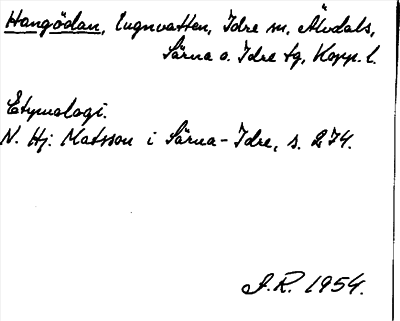 Hangödan, Lugnvatten, Idre sn, Älvdals,
Särna o. Idre tg, Kopp. l.
Etymologi.
N. Hj. Matsson i Särna-Idre, s. 274.
J.R. 1954.